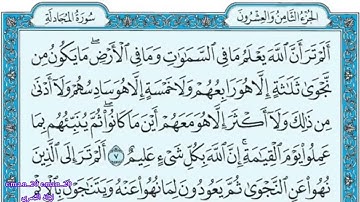 الجزء الثامن والعشرون
سورة المجادلة
أَلَمْ تَرَ أَنَّ اللَّهَ يَعْلَمُ مَا فِي السَّمَاوَاتِ وَمَا فِي الْأَرْضِ مَا يَكُونُ مِن
نَّجْوَىٰ ثَلَاثَةٍ إِلَّا هُوَ رَابِعُهُمْ وَلَا خَمْسَةٍ إِلَّا هُوَ سَادِسُهُمْ وَلَا أَدْنَىٰ
مِن ذَٰلِكَ وَلَا أَكْثَرَ إِلَّا هُوَ مَعَهُمْ أَيْنَ مَا كَانُوا ثُمَّ يُنَبِّئُهُم بِمَا
عَمِلُوا يَوْمَ الْقِيَامَةِ إِنَّ اللَّهَ بِكُلِّ شَيْءٍ عَلِيمٌ ٧ أَلَمْ تَرَ إِلَى الَّذِينَ
نُهُوا عَنِ النَّجْوَىٰ ثُمَّ يَعُودُونَ لِمَا نُهُوا عَنْهُ وَيَتَنَاجَوْنَ بِالْإِثْمِ